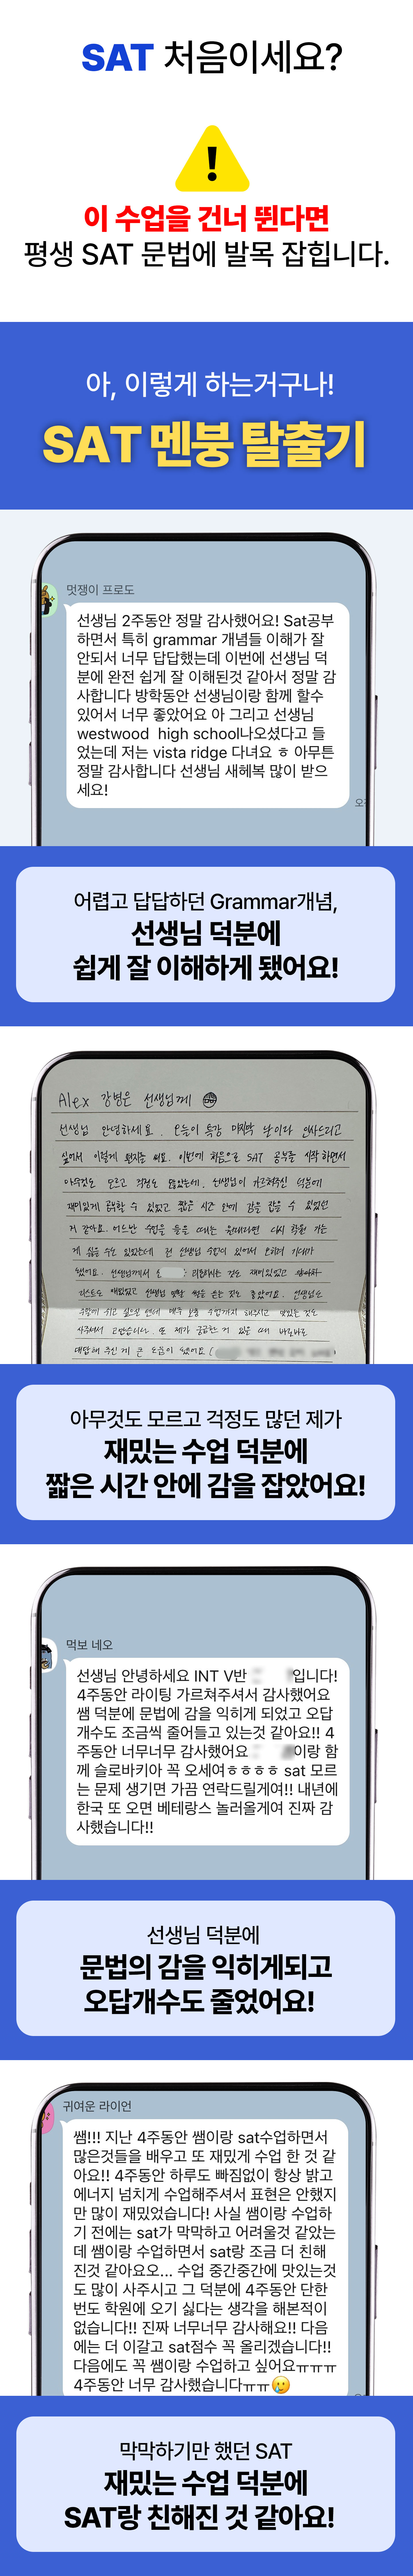 SAT 처음이세요?
!
이 수업을 건너 뛴다면
평생 SAT 문법에 발목 잡힙니다.
아, 이렇게 하는거구나!
SAT 멘붕 탈출기
멋쟁이 프로도
선생님 2주동안 정말 감사했어요! Sat공부
하면서 특히 grammar 개념들 이해가 잘
안되서 너무 답답했는데 이번에 선생님 덕
분에 완전 쉽게 잘 이해된것 같아서 정말 감
사합니다 방학동안 선생님이랑 함께 할수
있어서 너무 좋았어요 아 그리고 선생님
westwood high school나오셨다고 들
었는데 저는 vista ridge 다녀요 ㅎ 아무튼
정말 감사합니다 선생님 새헤복 많이 받으
세요!
어렵고 답답하던 Grammar개념,
선생님 덕분에
쉽게 잘 이해하게 됐어요!
Alex 강병은 선생님께
선생님 안녕하세요. 오늘이 특강 마지막 날이라 인사드리고
싶어서 이렇게 편지를 써요. 이번에 처음으로 SAT 공부를 시작하면서
아무것도 모르고 걱정도 많았는데, 선생님이 가르쳐주신 덕분에
재미있게 공부할 수 있었고 짧은 시간 안에 감을 잡을 수 있었던
거 같아요. 어느난 수업을 들을 때는
게 싫을 수도 있었는데 전 선생님 수업이 있어서 오히려 기대가
됐어요. 선생님께서
재미있었고
선생님
매주 보충 수업까지 해주시고 맛있는 것도
사주셔서 고맙습니다. 또 제가 궁금한 거 있을 때 바로바로
대답해 주신 게 큰 도움이 됐어요.
아무것도 모르고 걱정도 많던 제가
재밌는 수업 덕분에
짧은 시간 안에 감을 잡았어요!
먹보 네오
선생님 안녕하세요 INT V반 입니다!
4주동안 라이팅 가르쳐주셔서 감사했어요
쌤 덕분에 문법에 감을 익히게 되었고 오답
개수도 조금씩 줄어들고 있는것 같아요!! 4
주동안 너무너무 감사했어요 이랑 함
께 슬로바키아 꼭 오세여ㅎㅎㅎㅎ sat 모르
는 문제 생기면 가끔 연락드릴게여!! 내년에
한국 또 오면 베테랑스 놀러올게여 진짜 감
사했습니다!!
선생님 덕분에
문법의 감을 익히게되고
오답개수도 줄었어요!
귀여운 라이언
쌤!!! 지난 4주동안 쌤이랑 sat수업하면서
많은것들을 배우고 또 재밌게 수업 한 것 같
아요!! 4주동안 하루도 빠짐없이 항상 밝고
에너지 넘치게 수업해주셔서 표현은 안했지
만 많이 재밌었습니다! 사실 쌤이랑 수업하
기 전에는 sat가 막막하고 어려울것 같았는
데 쌤이랑 수업하면서 sat랑 조금 더 친해
진것 같아요오... 수업 중간중간에 맛있는것
도 많이 사주시고 그 덕분에 4주동안 단한
번도 학원에 오기 싫다는 생각을 해본적이
없습니다!! 진짜 너무너무 감사해요!! 다음
에는 더 이갈고 sat점수 꼭 올리겠습니다!!
다음에도 꼭 쌤이랑 수업하고 싶어요ㅠㅠㅠ
4주동안 너무 감사했습니다ㅠㅠ🥲
막막하기만 했던 SAT
재밌는 수업 덕분에
SAT랑 친해진 것 같아요!